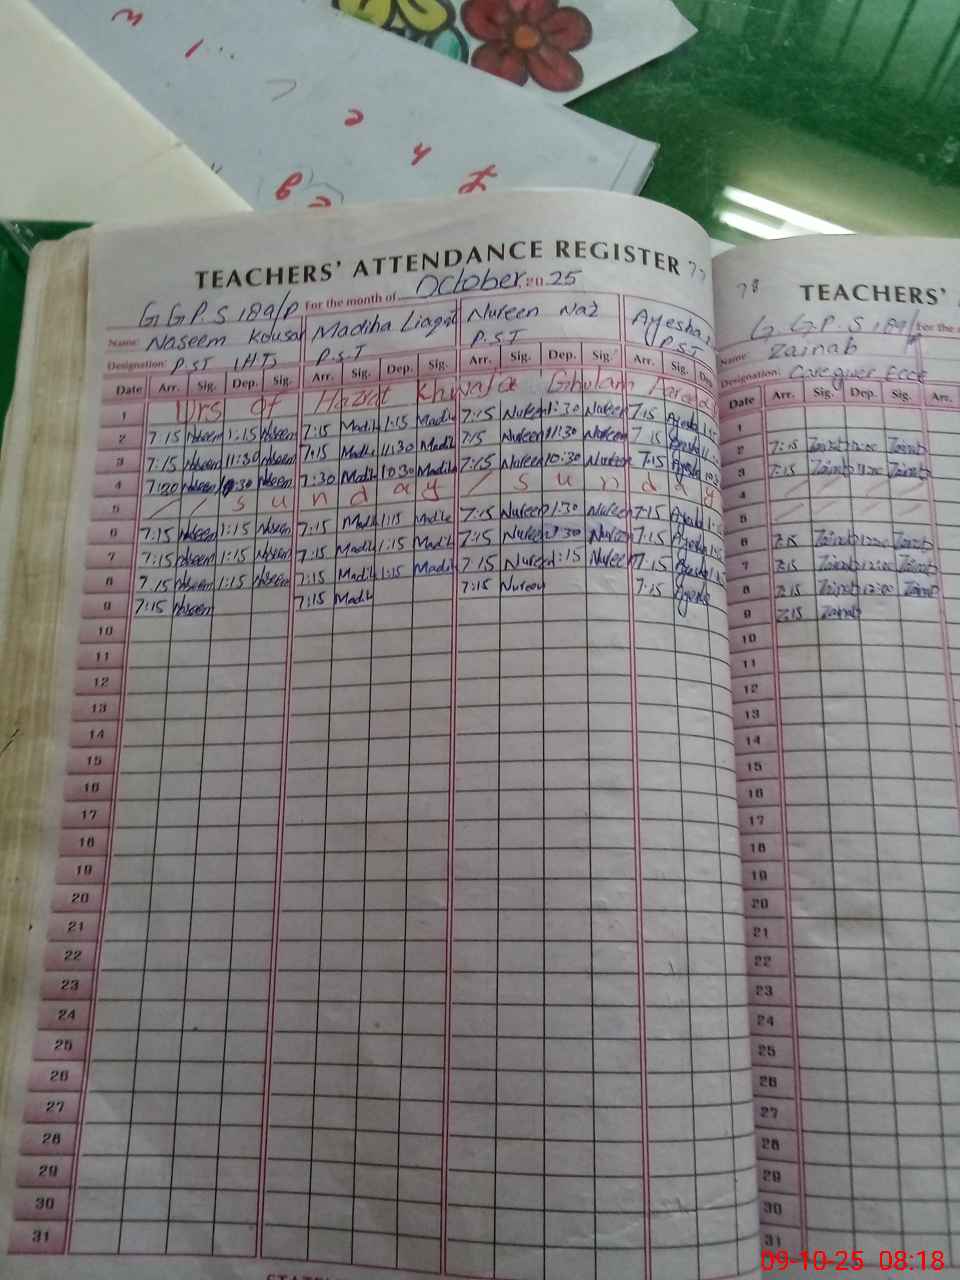 TEACHERS' ATTENDANCE REGISTER 77
G.G.P.S 189/P For the month of October, 2025
Name: Naseem Kousar Madiha Liaqat Nureen Naz Ayesha
Designation: P.ST IHTs P.S.T P.S.T P.ST
Date Arr. Sig. Dep. Sig. Arr. Sig. Dep. Sig. Arr. Sig. Dep. Sig. Arr. Sig. Dep
1 Urs of Hazrat Khwaja Ghulam Fareed
2 7:15 Naseem 1:15 Naseem 7:15 Madih 1:15 Madih 7:15 Nureen 1:30 Nureen 7:15 Ayesha
3 7:15 Naseem 11:30 Naseem 7:15 Madih 11:30 Madih 7:15 Nureen 11:30 Nureen 7:15 Ayesha
4 7:20 Naseem 10:30 Naseem 7:30 Madih 10:30 Madiha 7:15 Nureen 10:30 Nureen 7:15 Ayesha
5 Sunday Sunday
6 7:15 Naseem 1:15 Naseem 7:15 Madih 1:15 Madih 7:15 Nureen 1:30 Nureen 7:15 Ayesha
7 7:15 Naseem 1:15 Naseem 7:15 Madih 1:15 Madih 7:15 Nureen 1:30 Nureen 7:15 Ayesha
8 7:15 Naseem 1:15 Naseem 7:15 Madih 1:15 Madih 7:15 Nureen 1:15 Nureen 7:15 Ayesha
9 7:15 Naseem 7:15 Madih 7:15 Nureen 7:15 Ayesha
10
11
12
13
14
15
16
17
18
19
20
21
22
23
24
25
26
27
28
29
30
31
78 TEACHERS'
G.G.P.S 189/P For the
Name: Zainab
Designation: Care guer ECCE
Date Arr. Sig. Dep. Sig. Arr.
1
2 7:15 Zainab 12:00 Zainab
3 7:15 Zainab Zainab
4
5
6 7:15 Zainab 12:00 Zainab
7 7:15 Zainab 12:00 Zainab
8 7:15 Zainab 12:00 Zainab
9 7:15 Zainab
10
11
12
13
14
15
16
17
18
19
20
21
22
23
24
25
26
27
28
29
30
31
09-10-25 08:18